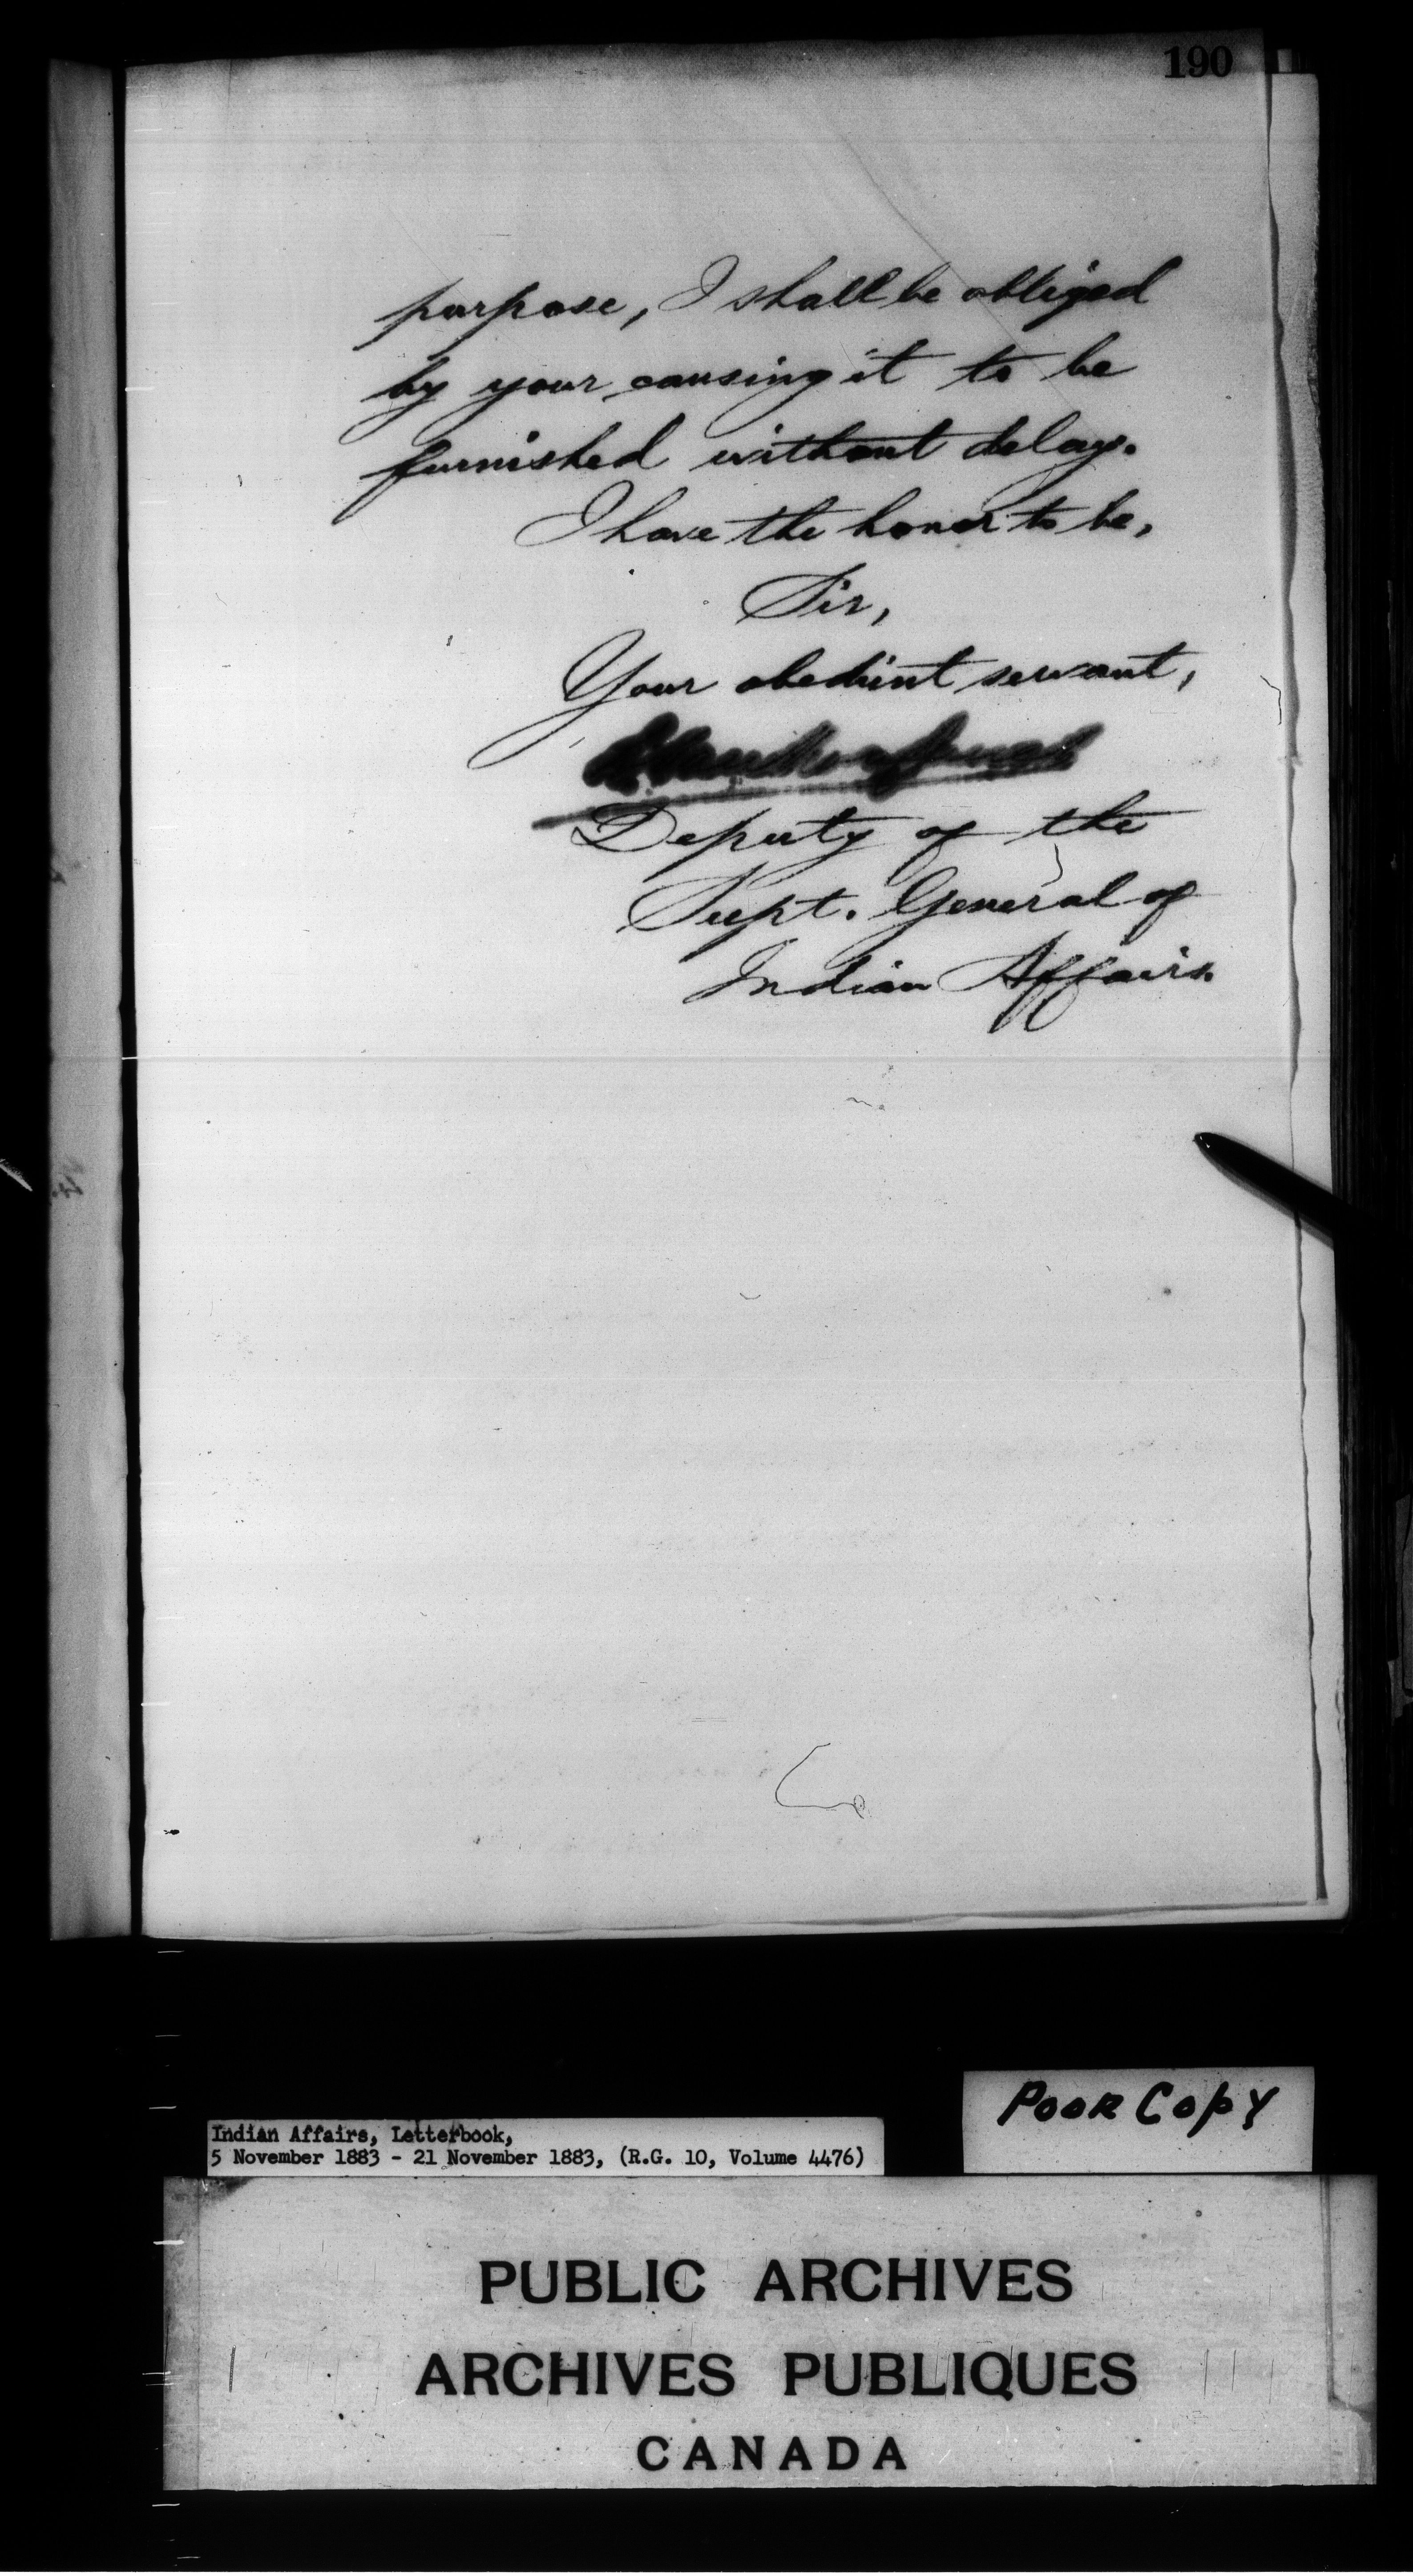 190
purpose, I shall be obliged
by your causing it to be
furnished without delay.
I have the honor to be,
Sir,
Your obedient servant,
Deputy of the
Supt. General of
Indian Affairs.
Poor Copy
Indian Affairs, Letterbook,
5 November 1883 - 21 November 1883, (R.G. 10, Volume 4476)
PUBLIC ARCHIVES
ARCHIVES PUBLIQUES
CANADA